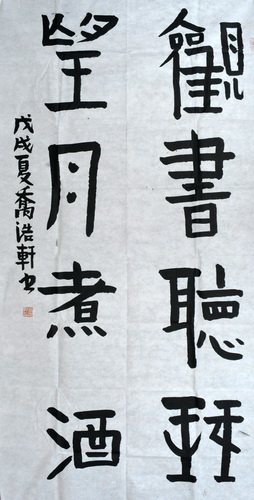 觀書聽琴
望月煮酒
戊戌夏喬浩軒书